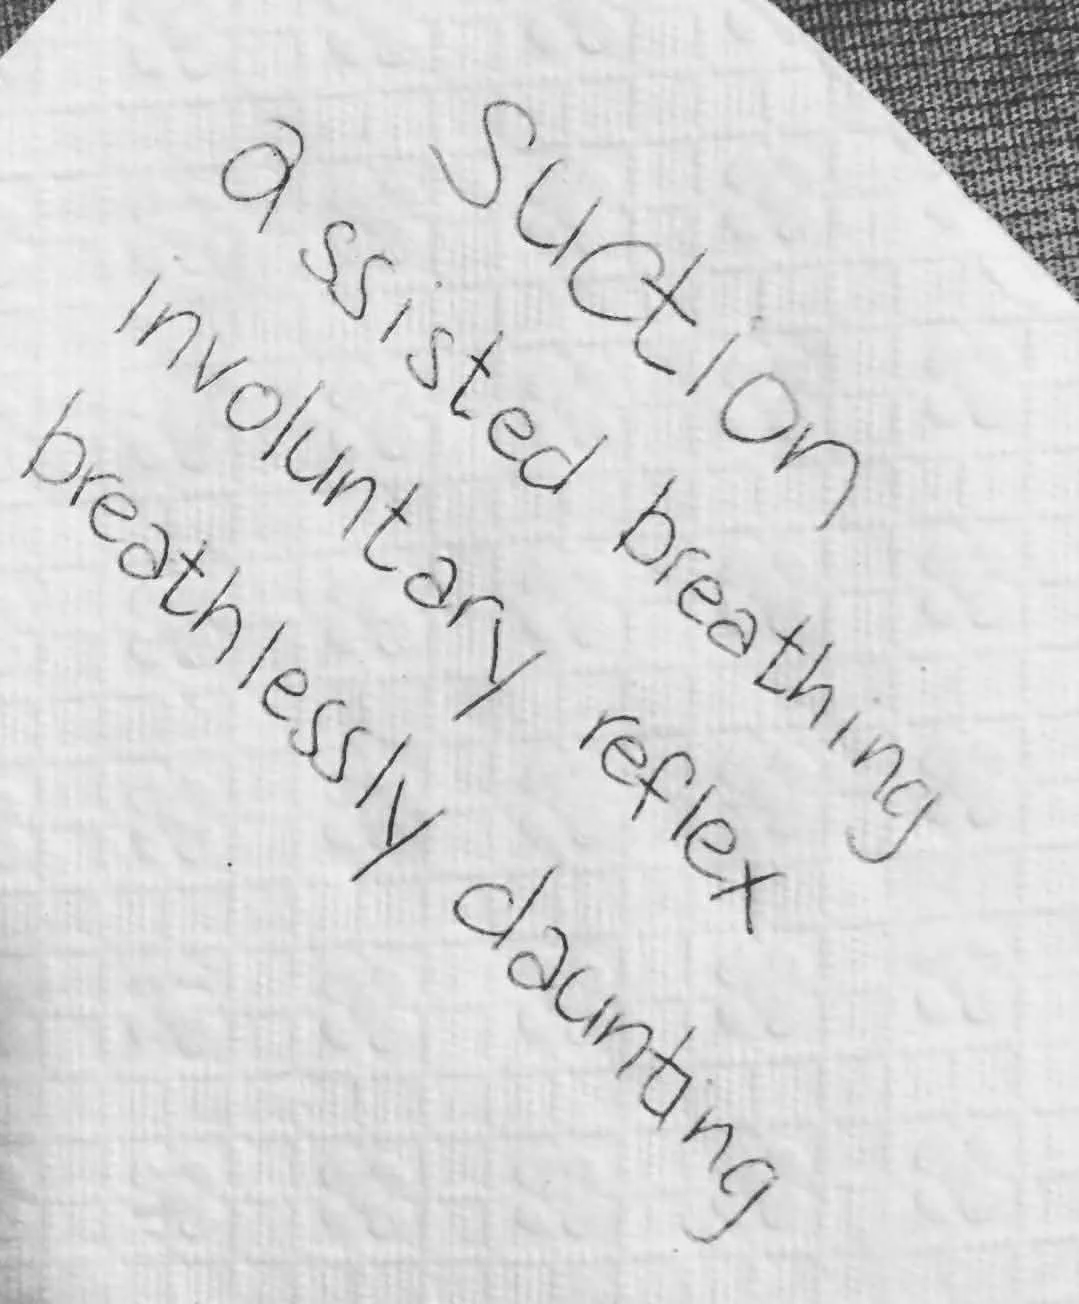 suction
assisted breathing
involuntary reflex
breathlessly daunting